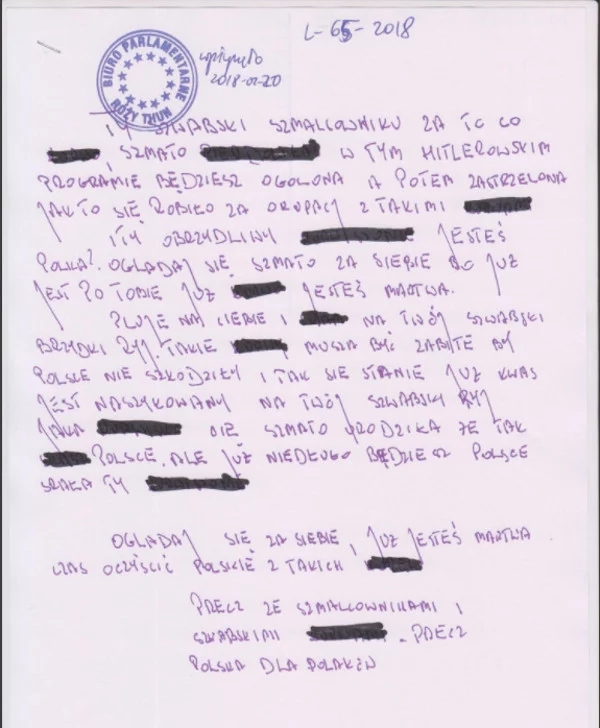 L-65-2018
BIURO PARLAMENTARNE
RÓŻY THUN
wpłynęło
2018-01-20
TY SZWABSKI SZMALCOWNIKU ZA TO CO
, SZMATO W TYM HITLEROWSKIM
PROGRAMIE BĘDZIESZ OGOLONA A POTEM ZASTRZELONA
JAK TO SIĘ ROBIŁO ZA OKUPACJ Z TAKIMI
I TY OBRZYDLIWY JESTEŚ
POLKA? OGLĄDAJ SIĘ SZMATO ZA SIEBIE BO JUŻ
JEST PO TOBIE JUŻ JESTEŚ MARTWA.
PLUJE NA CIEBIE I NA TWÓJ SZWABSKI
BRZYDKI RYJ. TAKIE MUSZĄ BYĆ ZABITE BY
POLSKE NIE SZKODZIŁY I TAK SIE STANIE JUŻ KWAS
JEST NASZYKOWANY NA TWÓJ SZWABSKI RYJ
JAKA CIE SZMATO URODZIŁA ŻE TAK
POLSCE. ALE JUŻ NIEDŁUGO BĘDZIESZ POLSCE
SRAŁA TY
OGLĄDAJ SIE ZA SIEBIE, JUŻ JESTEŚ MARTWA
CZAS OCZYŚCIĆ POLSKIE Z TAKICH
PRECZ ZE SZMALCOWNIKAMI I
SZWABSKIMI . PRECZ
POLSKA DLA POLAKÓW